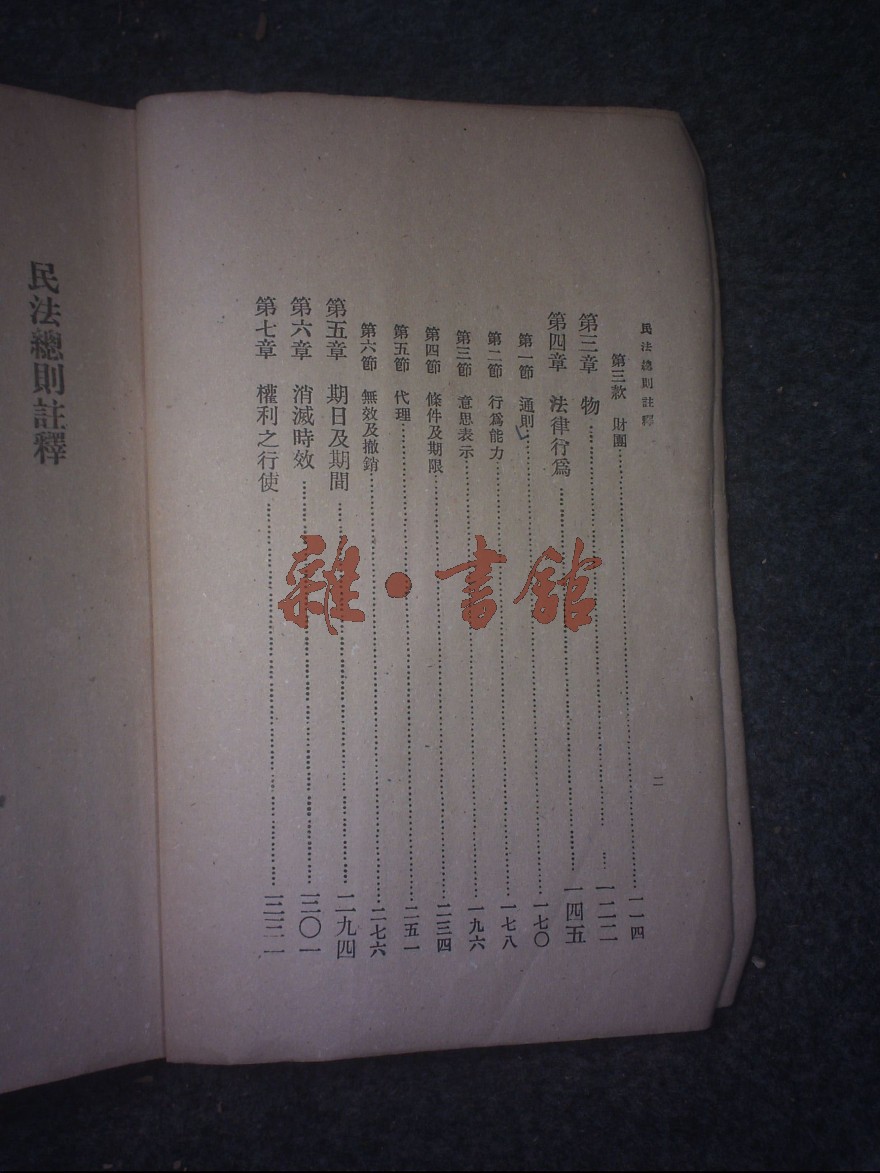 民法總則註釋 二
第三款 財團……一一四
第三章 物……一二二
第四章 法律行爲……一四五
第一節 通則……一七〇
第二節 行爲能力……一七八
第三節 意思表示……一九六
第四節 條件及期限……二三四
第五節 代理……二五一
第六節 無效及撤銷……二七六
第五章 期日及期間……二九四
第六章 消滅時效……三〇一
第七章 權利之行使……三三一
民法總則註釋
雜·書館